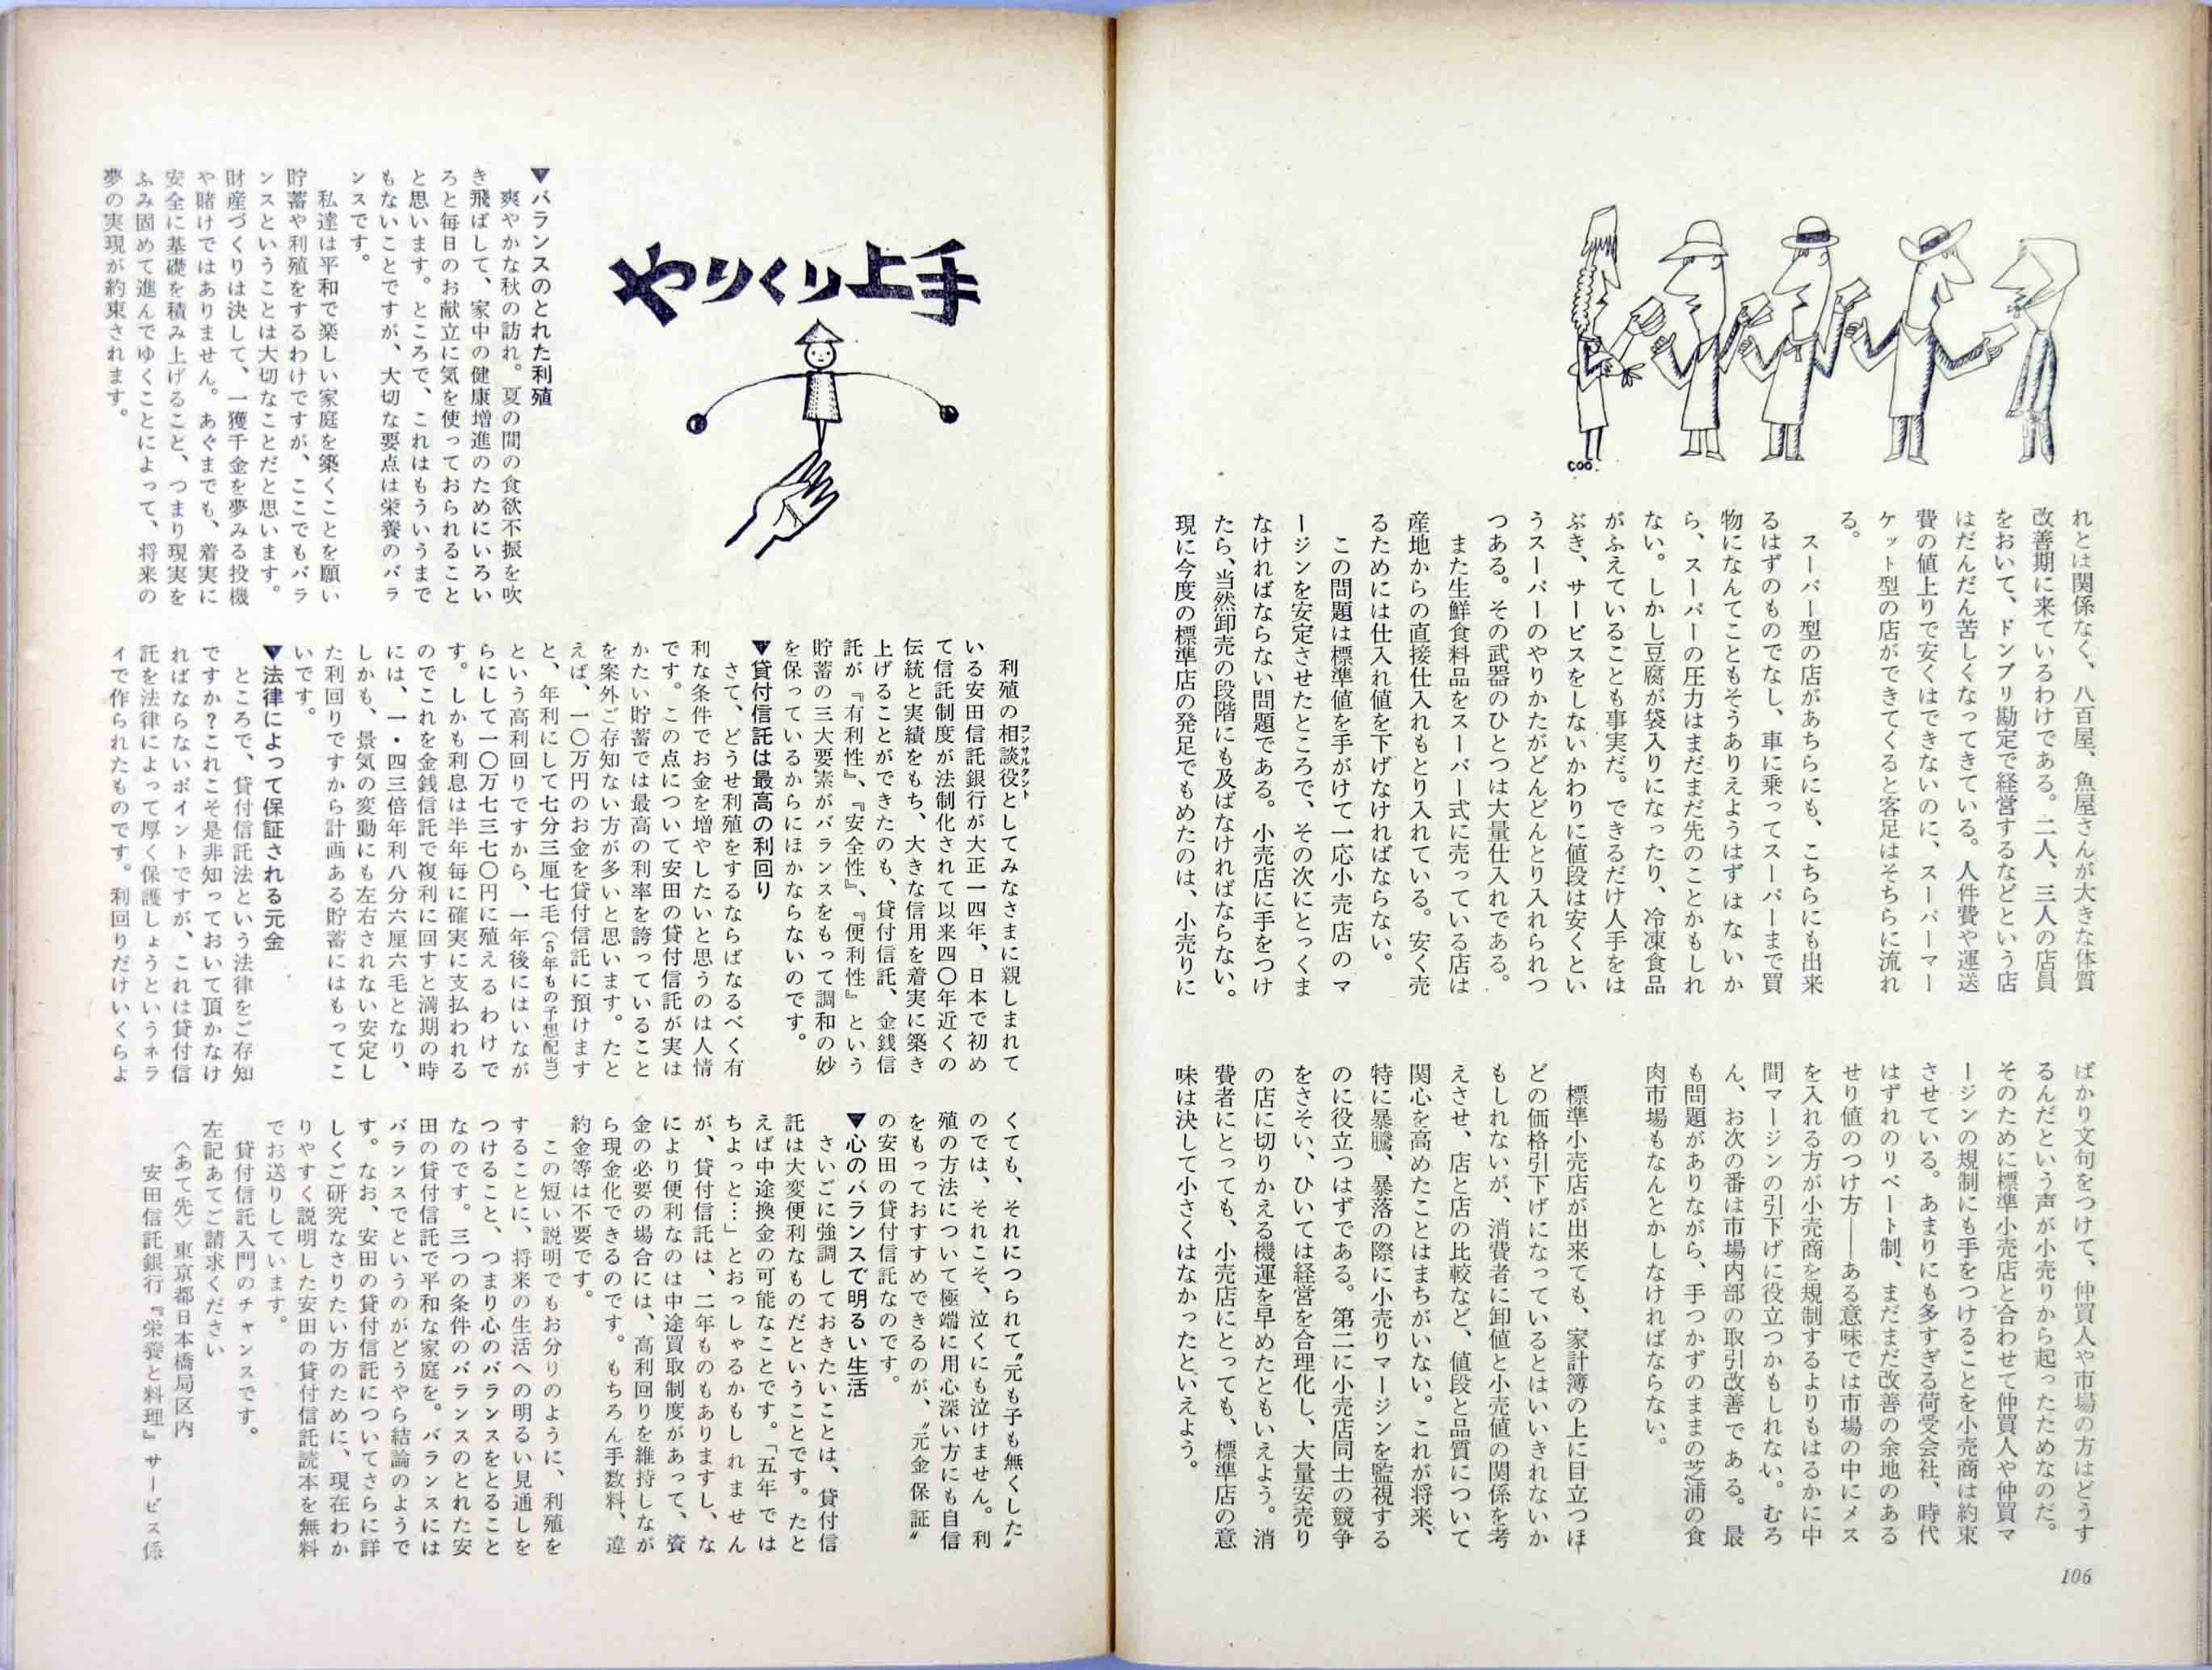 れとは関係なく、八百屋、魚屋さんが大きな体質
改善期に来ているわけである。二人、三人の店員
をおいて、ドンブリ勘定で経営するなどという店
はだんだん苦しくなってきている。人件費や運送
費の値上りで安くはできないのに、スーパーマー
ケット型の店ができてくると客足はそちらに流れ
る。
スーパー型の店があちらにも、こちらにも出来
るはずのものでなし、車に乗ってスーパーまで買
物になんてこともそうありえようはずはないか
ら、スーパーの圧力はまだまだ先のことかもしれ
ない。しかし豆腐が袋入りになったり、冷凍食品
がふえていることも事実だ。できるだけ人手をは
ぶき、サービスをしないかわりに値段は安くとい
うスーパーのやりかたがどんどんとり入れられつ
つある。その武器のひとつは大量仕入れである。
また生鮮食料品をスーパー式に売っている店は
産地からの直接仕入れもとり入れている。安く売
るためには仕入れ値を下げなければならない。
この問題は標準値を手がけて一応小売店のマ
ージンを安定させたところで、その次にとっくま
なければならない問題である。小売店に手をつけ
たら、当然卸売の段階にも及ばなければならない。
現に今度の標準店の発足でもめたのは、小売りに
ばかり文句をつけて、仲買人や市場の方はどうす
るんだという声が小売りから起ったためなのだ。
そのために標準小売店と合わせて仲買人や仲買マ
ージンの規制にも手をつけることを小売商は約束
させている。あまりにも多すぎる荷受会社、時代
はずれのリベート制、まだまだ改善の余地のある
せり値のつけ方――ある意味では市場の中にメス
を入れる方が小売商を規制するよりもはるかに中
間マージンの引下げに役立つかもしれない。むろ
ん、お次の番は市場内部の取引改善である。最
も問題がありながら、手つかずのままの芝浦の食
肉市場もなんとかしなければならない。
標準小売店が出来ても、家計簿の上に目立つほ
どの価格引下げになっているとはいいきれないか
もしれないが、消費者に卸値と小売値の関係を考
えさせ、店と店の比較など、値段と品質について
関心を高めたことはまちがいない。これが将来、
特に暴騰、暴落の際に小売りマージンを監視する
のに役立つはずである。第二に小売店同士の競争
をさそい、ひいては経営を合理化し、大量安売り
の店に切りかえる機運を早めたともいえよう。消
費者にとっても、小売店にとっても、標準店の意
味は決して小さくはなかったといえよう。
COO.
106
やりくり上手
▼バランスのとれた利殖
爽やかな秋の訪れ。夏の間の食欲不振を吹
き飛ばして、家中の健康増進のためにいろい
ろと毎日のお献立に気を使っておられること
と思います。ところで、これはもういうまで
もないことですが、大切な要点は栄養のバラ
ンスです。
私達は平和で楽しい家庭を築くことを願い
貯蓄や利殖をするわけですが、ここでもバラ
ンスということは大切なことだと思います。
財産づくりは決して、一獲千金を夢みる投機
や賭けではありません。あぐまでも、着実に
安全に基礎を積み上げること、つまり現実を
ふみ固めて進んでゆくことによって、将来の
夢の実現が約束されます。
利殖の相談役としてみなさまに親しまれて
コンサルタント
いる安田信託銀行が大正一四年、日本で初め
て信託制度が法制化されて以来四〇年近くの
伝統と実績をもち、大きな信用を着実に築き
上げることができたのも、貸付信託、金銭信
託が『有利性』、『安全性』、『便利性』という
貯蓄の三大要素がバランスをもって調和の妙
を保っているからにほかならないのです。
▼貸付信託は最高の利回り
さて、どうせ利殖をするならばなるべく有
利な条件でお金を増やしたいと思うのは人情
です。この点について安田の貸付信託が実は
かたい貯蓄では最高の利率を誇っていること
を案外ご存知ない方が多いと思います。たと
えば、一〇万円のお金を貸付信託に預けます
と、年利にして七分三厘七毛（5年もの予想配当）
という高利回りですから、一年後にはいなが
らにして一〇万七三七〇円に殖えるわけで
す。しかも利息は半年毎に確実に支払われる
のでこれを金銭信託で複利に回すと満期の時
には、一・四三倍年利八分六厘六毛となり、
しかも、景気の変動にも左右されない安定し
た利回りですから計画ある貯蓄にはもってこ
いです。
▼法律によって保証される元金
ところで、貸付信託法という法律をご存知
ですか？これこそ是非知っておいて頂かなけ
ればならないポイントですが、これは貸付信
託を法律によって厚く保護しょうというネラ
イで作られたものです。利回りだけいくらよ
くても、それにつられて〝元も子も無くした〟
のでは、それこそ、泣くにも泣けません。利
殖の方法について極端に用心深い方にも自信
をもっておすすめできるのが、〝元金保証〟
の安田の貸付信託なのです。
▼心のバランスで明るい生活
さいごに強調しておきたいことは、貸付信
託は大変便利なものだということです。たと
えば中途換金の可能なことです。「五年では
ちよっと…」とおっしゃるかもしれません
が、貸付信託は、二年ものもありますし、な
により便利なのは中途買取制度があって、資
金の必要の場合には、高利回りを維持しなが
ら現金化できるのです。もちろん手数料、違
約金等は不要です。
この短い説明でもお分りのように、利殖を
することに、将来の生活への明るい見通しを
つけること、つまり心のバランスをとること
なのです。三つの条件のバランスのとれた安
田の貸付信託で平和な家庭を。バランスには
バランスでというのがどうやら結論のようで
す。なお、安田の貸付信託についてさらに詳
しくご研究なさりたい方のために、現在わか
りやすく説明した安田の貸付信託読本を無料
でお送りしています。
貸付信託入門のチャンスです。
左記あてご請求ください
〈あて先〉東京都日本橋局区内
安田信託銀行『栄養と料理』サービス係